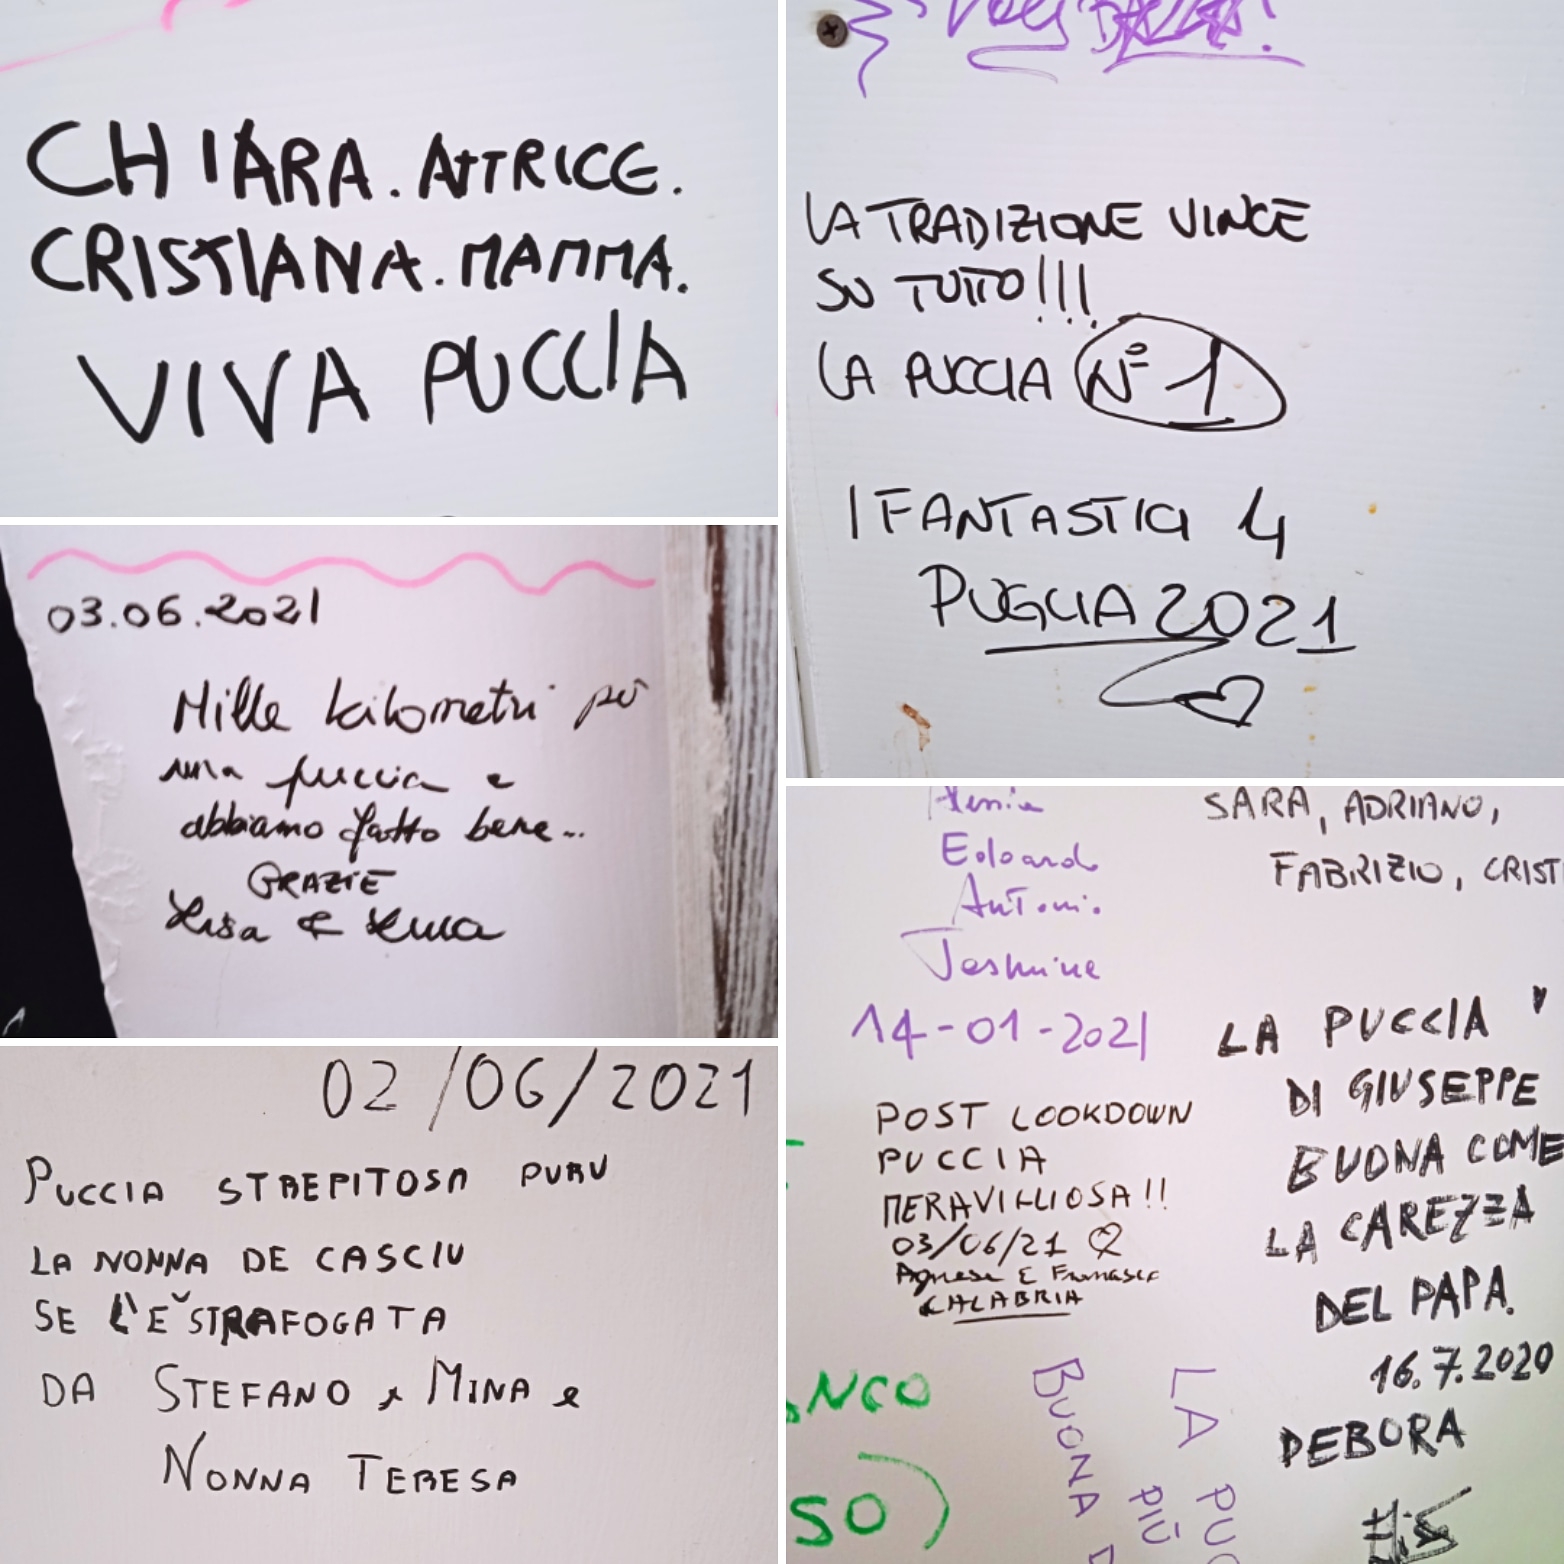 CHIARA. ATTRICE.
CRISTIANA. MAMMA.
VIVA PUCCIA
LA TRADIZIONE VINCE
SU TUTTO!!!
LA PUCCIA N° 1
I FANTASTICI 4
PUGLIA 2021
03.06.2021
Mille kilometri
una puccia e
abbiamo fatto bene...
GRAZIE
02/06/2021
PUCCIA STREPITOSA PURU
LA NONNA DE CASCIU
SE L'E' STRAFOGATA
DA STEFANO e MINA e
NONNA TERESA
Edoardo
Antonio
Jasmine
14-01-2021
SARA, ADRIANO,
FABRIZIO, CRISTI
POST LOOKDOWN
PUCCIA
MERAVIGLIOSA!!
03/06/21
Agnese E Francesca
CALABRIA
LA PUCCIA
DI GIUSEPPE
BUONA COME
LA CAREZZA
DEL PAPA.
16.7.2020
DEBORA
NCO
SO)
LA PUC
PIÙ
BUONA D